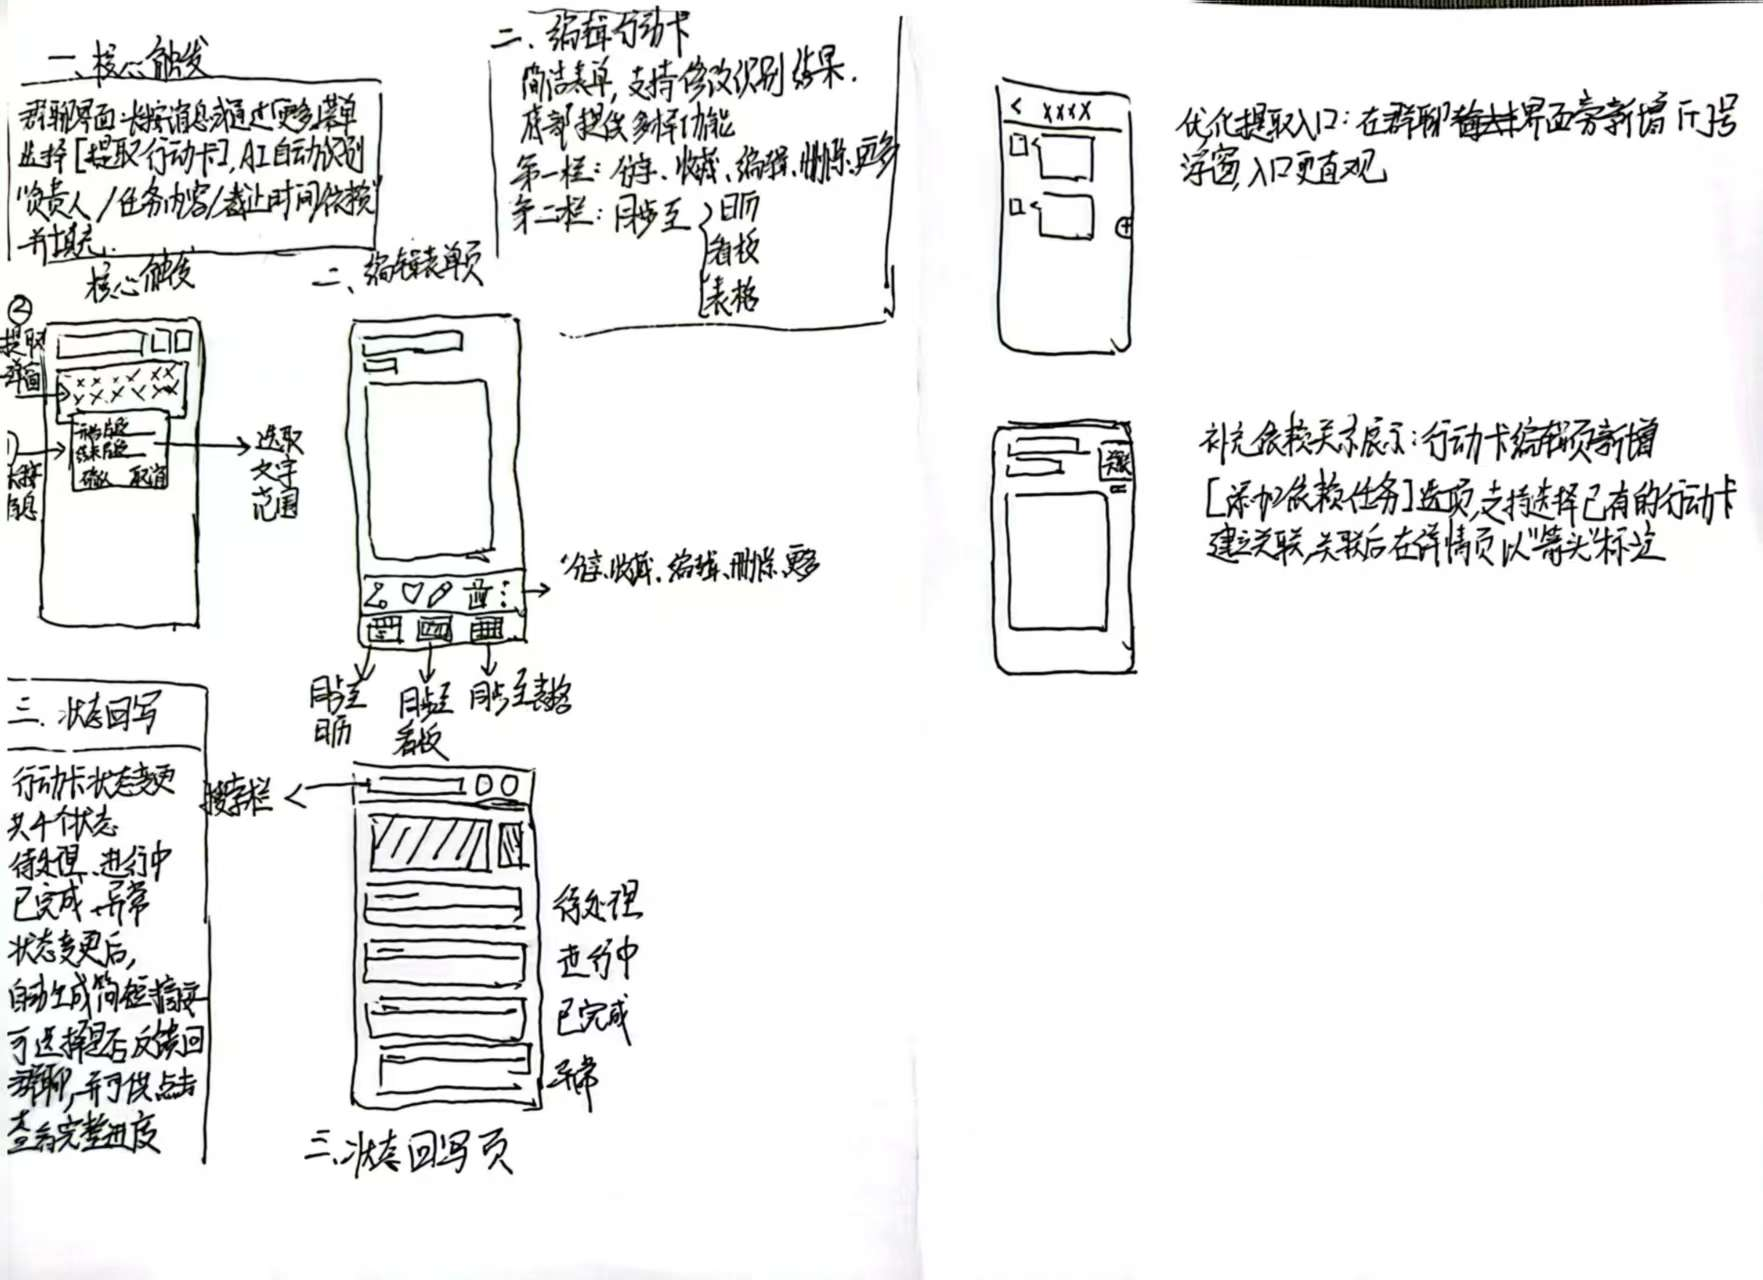 一、核心触发
群聊界面:长按消息或通过"更多"菜单
选择[提取行动卡],AI自动识别
"负责人/任务内容/截止时间/依赖"
并填充.
核心触发
②
提取
界面
长按
消息
确认 取消
选取
文字
范围
二、编辑行动卡
简洁表单,支持修改识别结果.
底部提供多样功能
第一栏:分享、收藏、编辑、删除、更多
第二栏:同步至
日历
看板
表格
二、编辑表单页
分享、收藏、编辑、删除、更多
同步至
日历
同步至
看板
同步至表格
三.状态回写
行动卡状态变更
共4个状态
待处理、进行中
已完成、异常
状态变更后,
自动生成简短摘要
可选择是否反馈回
群聊,并可供点击
查看完整进度
搜索栏
待处理
进行中
已完成
异常
三、状态回写页
< xxxx
优化提取入口:在群聊界面旁新增
浮窗,入口更直观
补充依赖关系展示:行动卡编辑页新增
[添加依赖任务]选项,支持选择已有的行动卡
建立关联,关联后在详情页以"箭头"标注